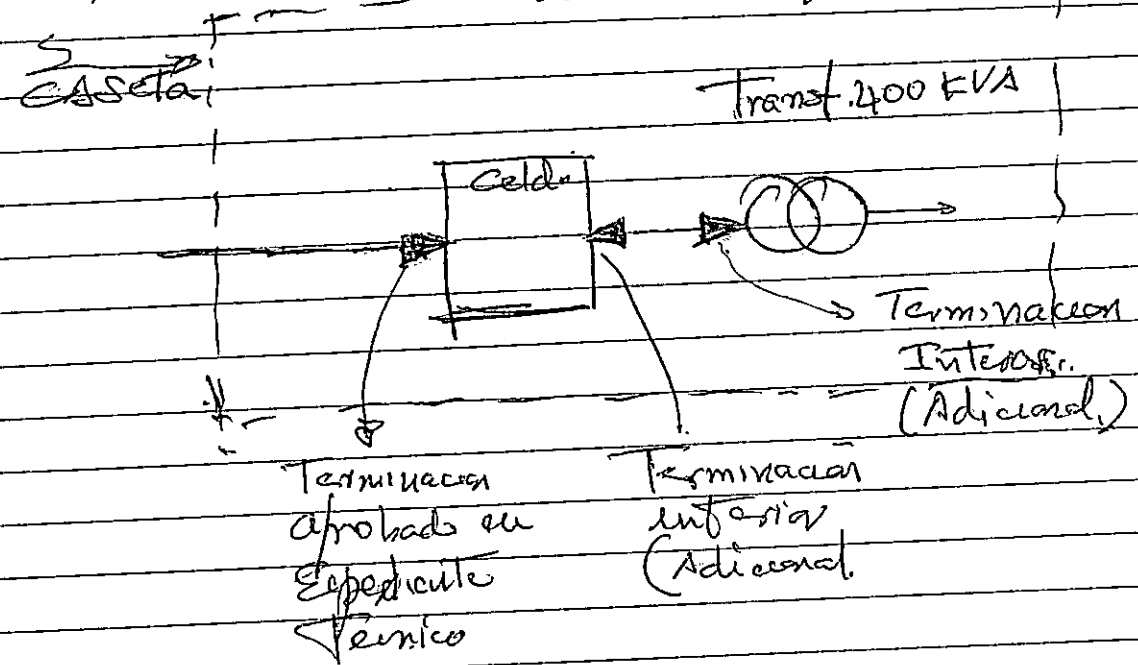 CASETA
Transf. 400 KVA
Celda
Terminacion
Interior.
(Adicional.)
Terminacion
aprobado en
Expediente
Tecnico
Terminacion
interior
(Adicional.